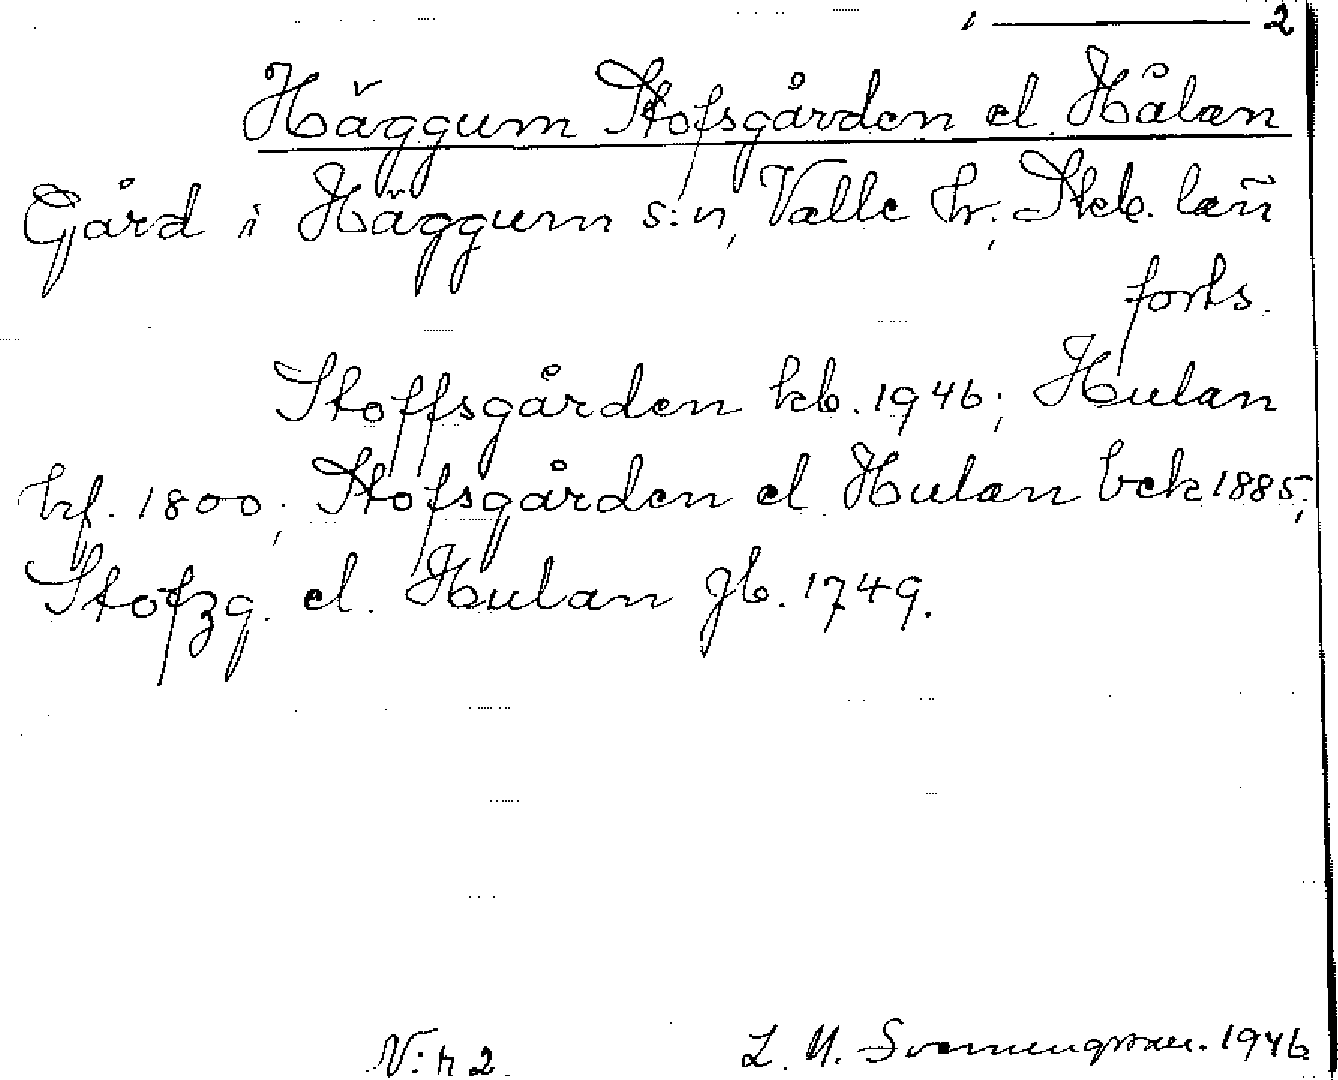 1 ——— 2
Häggum Stofsgården el Hålan
Gård i Häggum s:n, Valle hr; Skb. län
forts.
Stoffsgården kb. 1946; Hulan
hf. 1800; Stofsgården el. Hulan bek 1885;
Stofzg. el. Hulan Jb. 1749.
N:r 2. L. M. Svenungsson. 1946